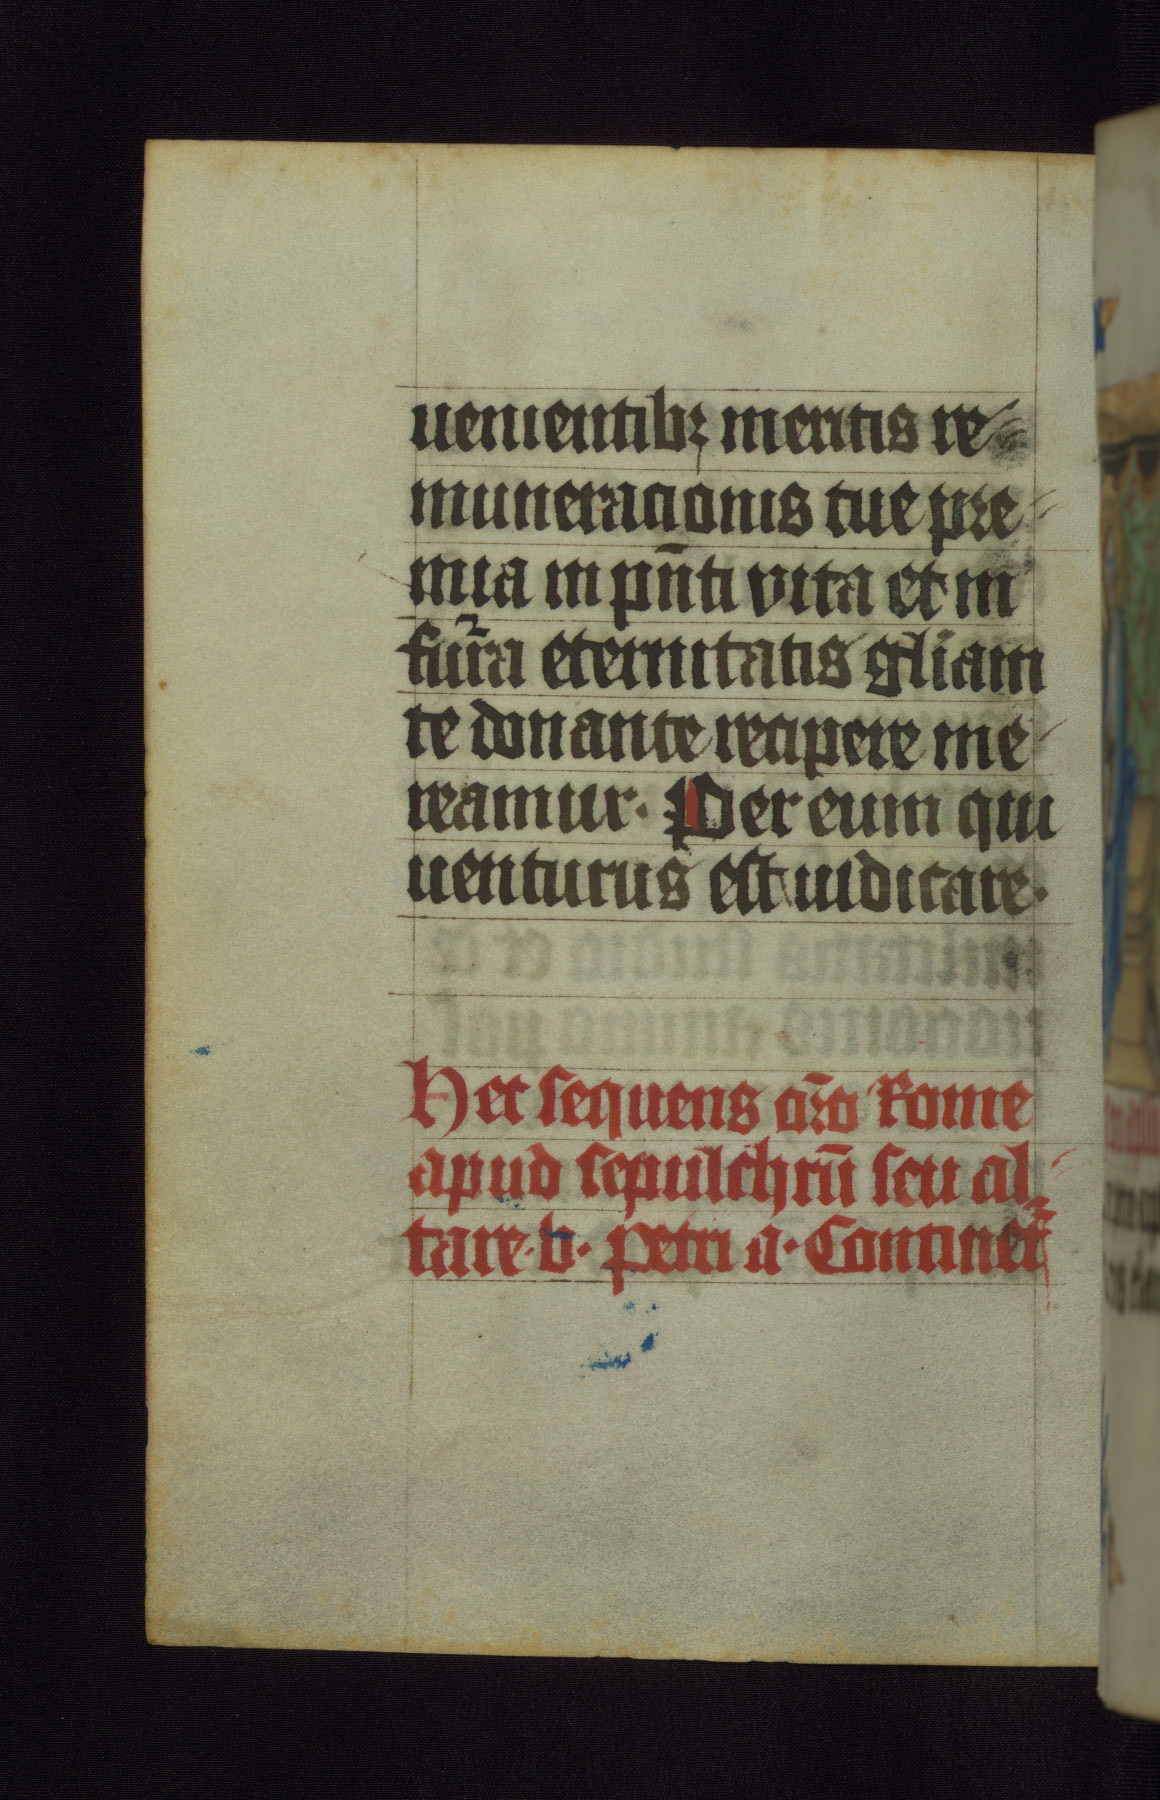 uenientibꝫ meritis re
muneracionis tue pre
mia in pn̄ti vita et in
futͬa eternitatis gl̄iam
te donante recipere me
reamur. Per eum qui
uenturus est iudicare.
Hec sequens or̄o Rome
apud sepulchrū seu al
tare .b. petri a. Continet᷑